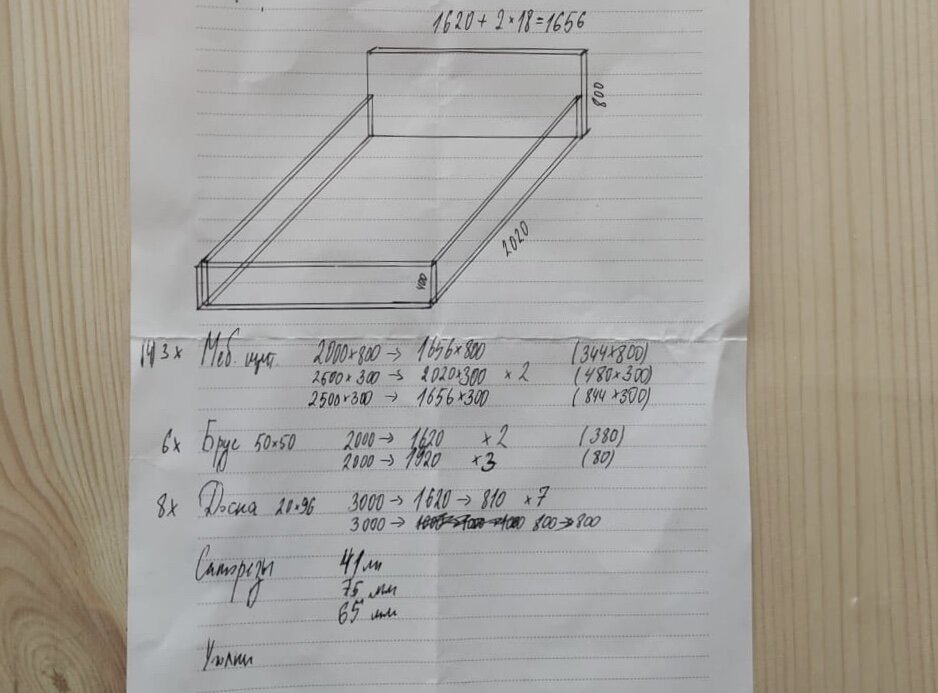 1620 + 2×18 = 1656
800
2020
400
(4) 3x Меб. щит. 2000×800 → 1656×800 (344×800)
2500×300 → 2020×300 ×2 (480×300)
2500×300 → 1656×300 (844×300)
6x Брус 50×50 2000 → 1620 ×2 (380)
2000 → 1920 ×3 (80)
8x Доска 20×96 3000 → 1620 → 810 ×7
3000 → 800 → 800
Саморезы 41 мм
75 мм
65 мм
Уголки